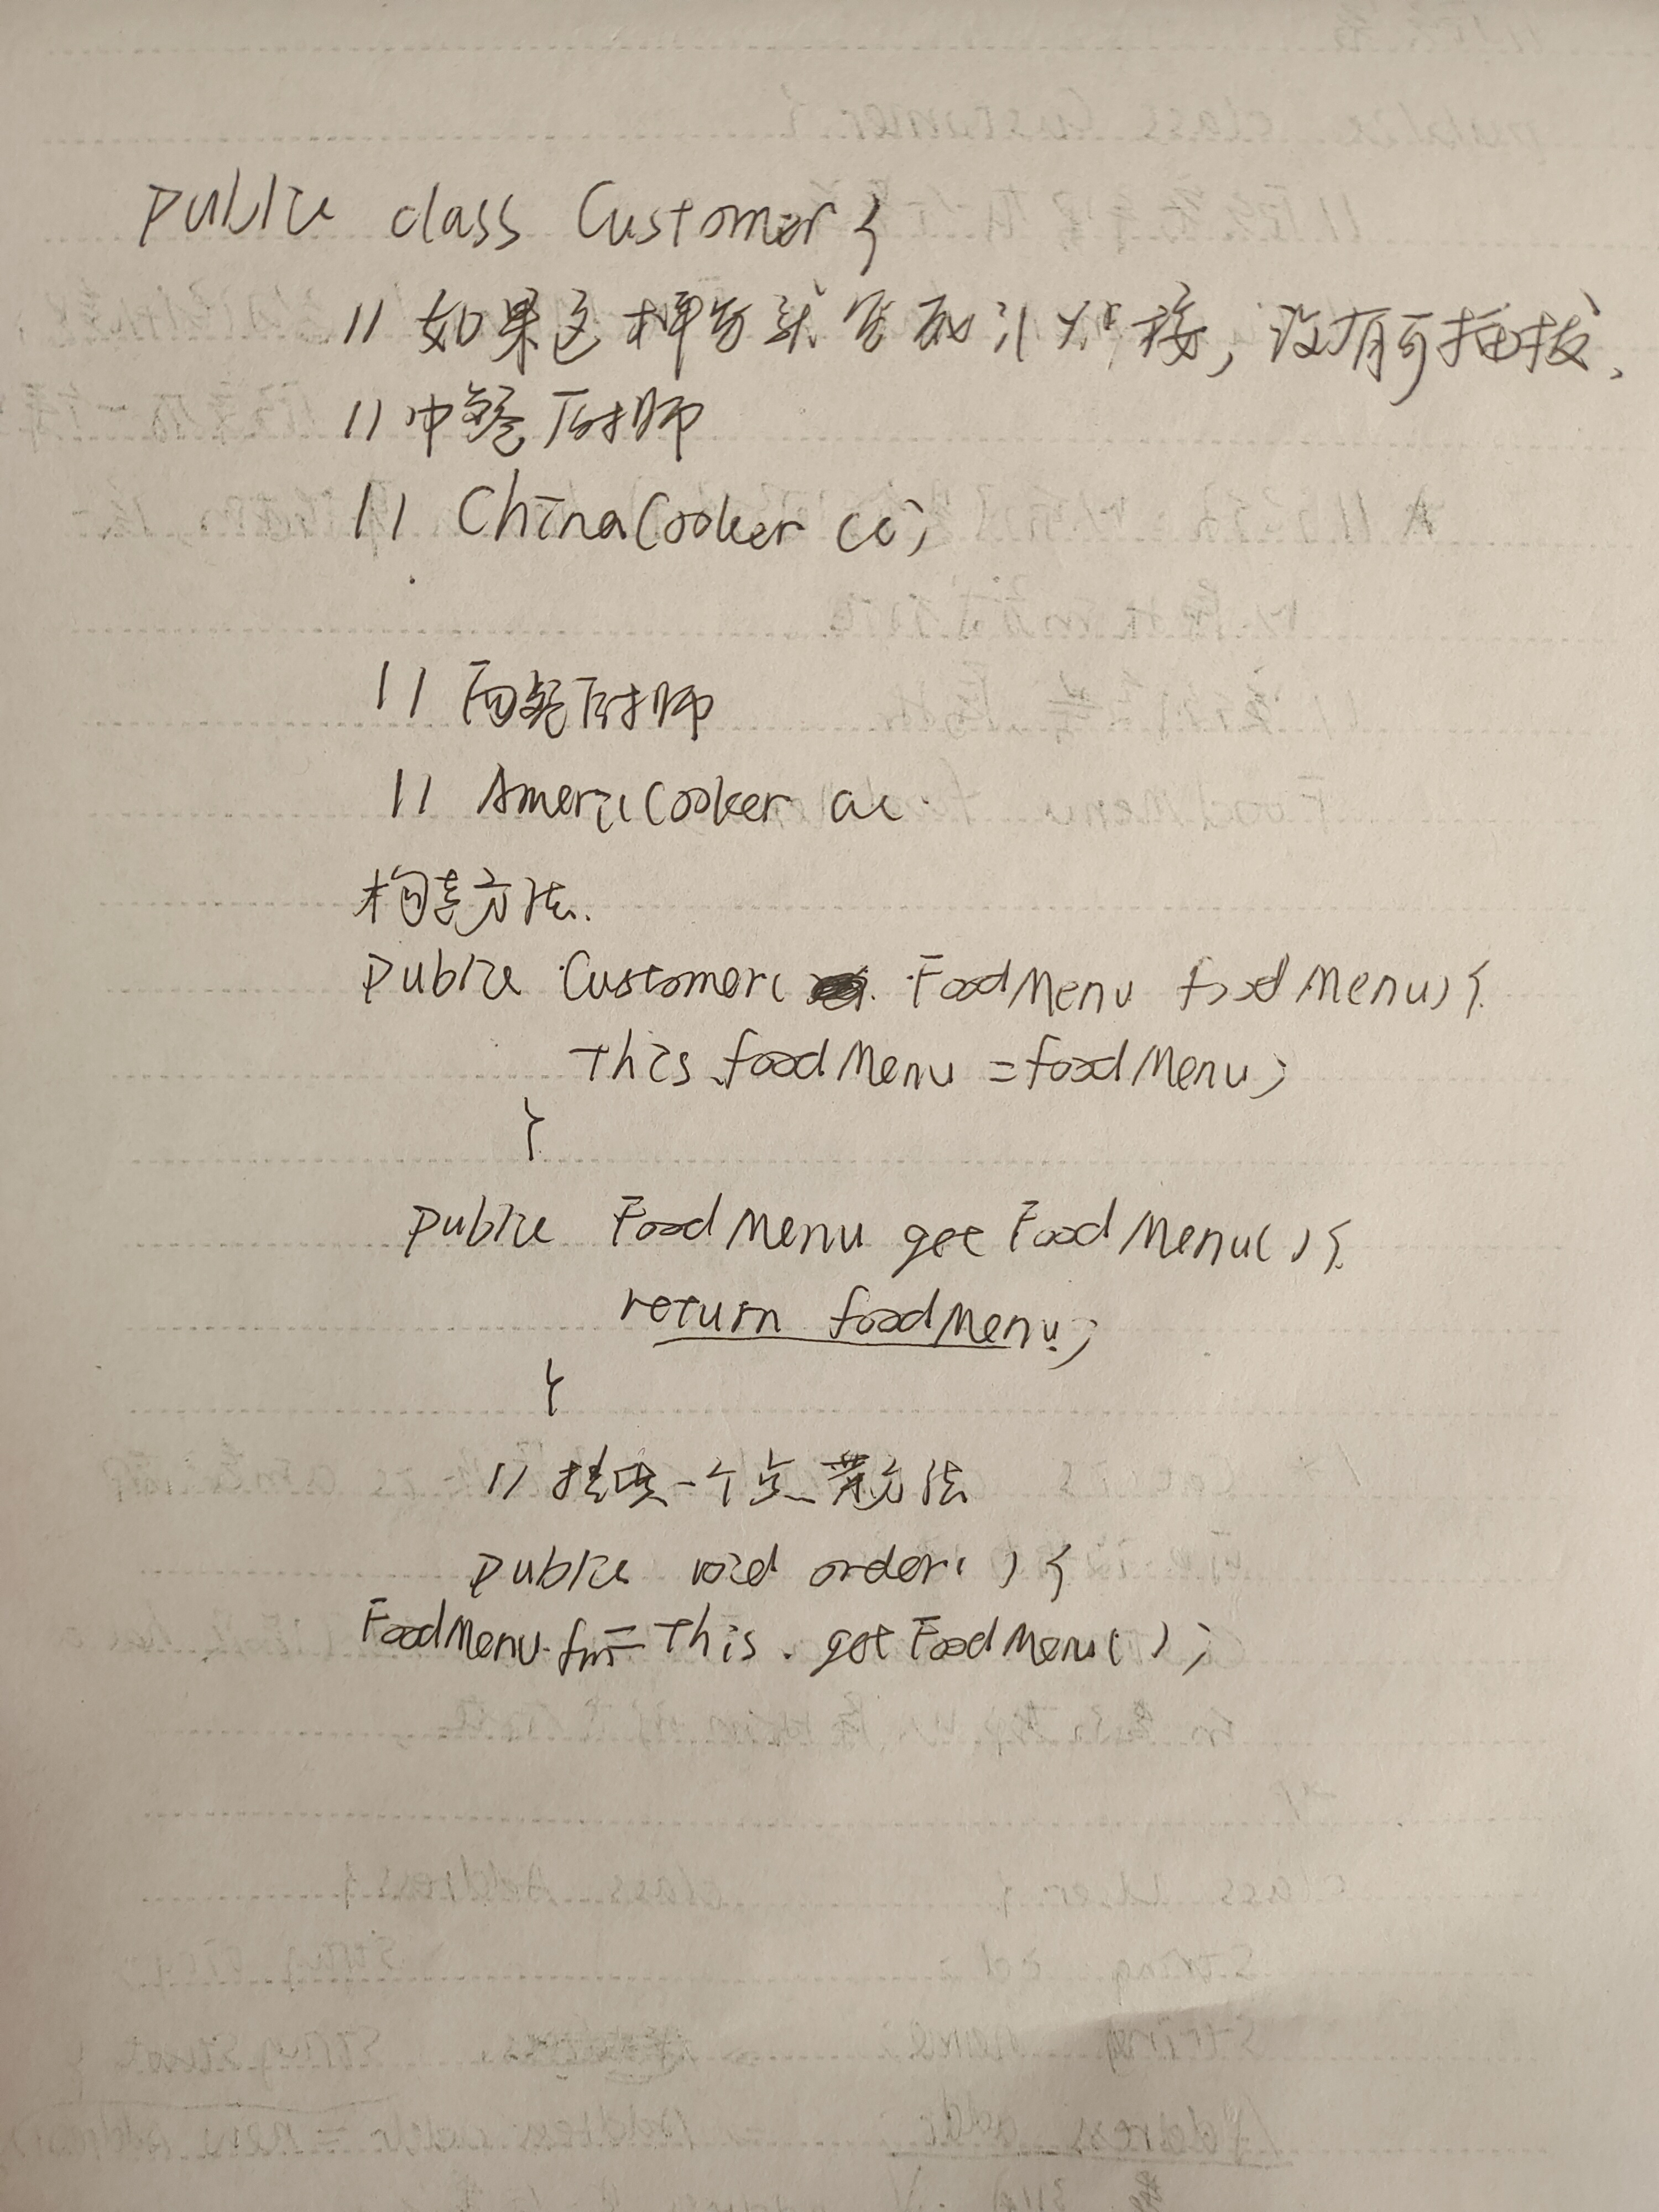 public class Customer {
// 如果这样写就 焊接, 没有可插拔.
// 中餐厨师
// ChinaCooker cc;
// 西餐厨师
// AmericCooker ac
构造方法.
public Customer( FoodMenu foodMenu) {
this.foodMenu = foodMenu;
}
public FoodMenu getFoodMenu( ) {
return foodMenu;
}
// 提供一个点菜方法
public void order( ) {
FoodMenu fm = this.getFoodMenu( );